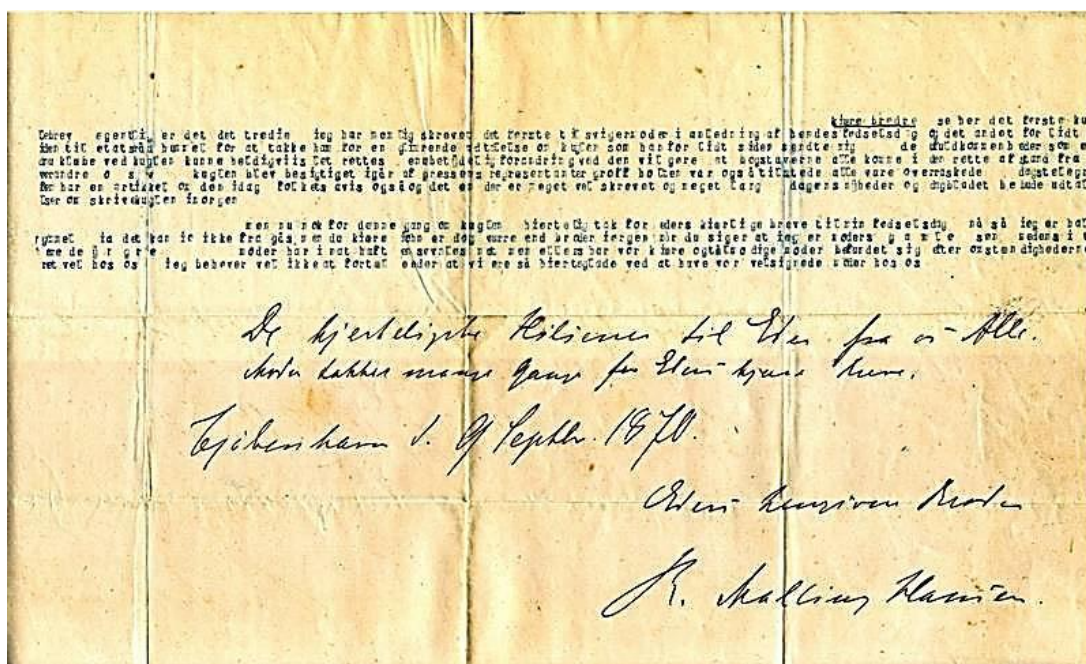 kjære brødre se her det første ku
lebrev egentlig er det det tredie jeg har nemlig skrevet det første til svigermoder i anledning af hendes fødselsd g og det andet for lidt
siden til etatsråh hummel for at takke ham for en udtalelse om kuglen som han for lidt siden sendte mig de ufuldkommenheder som en
klæbe ved kuglen kunne heldigviis let rettes en ubetydelig forandring ved den vil gøre at bogstaverne alle komme i den rette afstand fra
verandre o s v kuglen blev besigtiget igår af pressens repræsentanter også tilstede alle vare overraskede dagstelegra
fen har en artikkel om den idag folkets avis også og det er meget vel skrevet og meget lang dagens nyheder og dagbladet bebude udtal
elser om skrivekuglen imorgen
men nu nok for denne gang om kuglen hjertelig tak for eders kjærlige breve til min fødselsdag så så jeg er
ja det kan i ikke fra gås men du kjære er dog værre end broder jørgen når du siger at jeg er moders g a m l e søn
moder har i nat haft en søvnløs nat men ellers har vor kjære og tålmodige moder befundet sig efter omstændighederne
ret vel hos os jeg behøver vel ikke at fortæl eder at vi ere så hjerteglade ved at have vor velsignede moder hos os
De hjerteligste Hilsener til Eder fra os Alle.
Moder takker mange Gange for Eders kjære Breve.
Kjøbenhavn d. 9 Septbr. 1870.
Eders hengivne Broder
R. Malling Hansen.